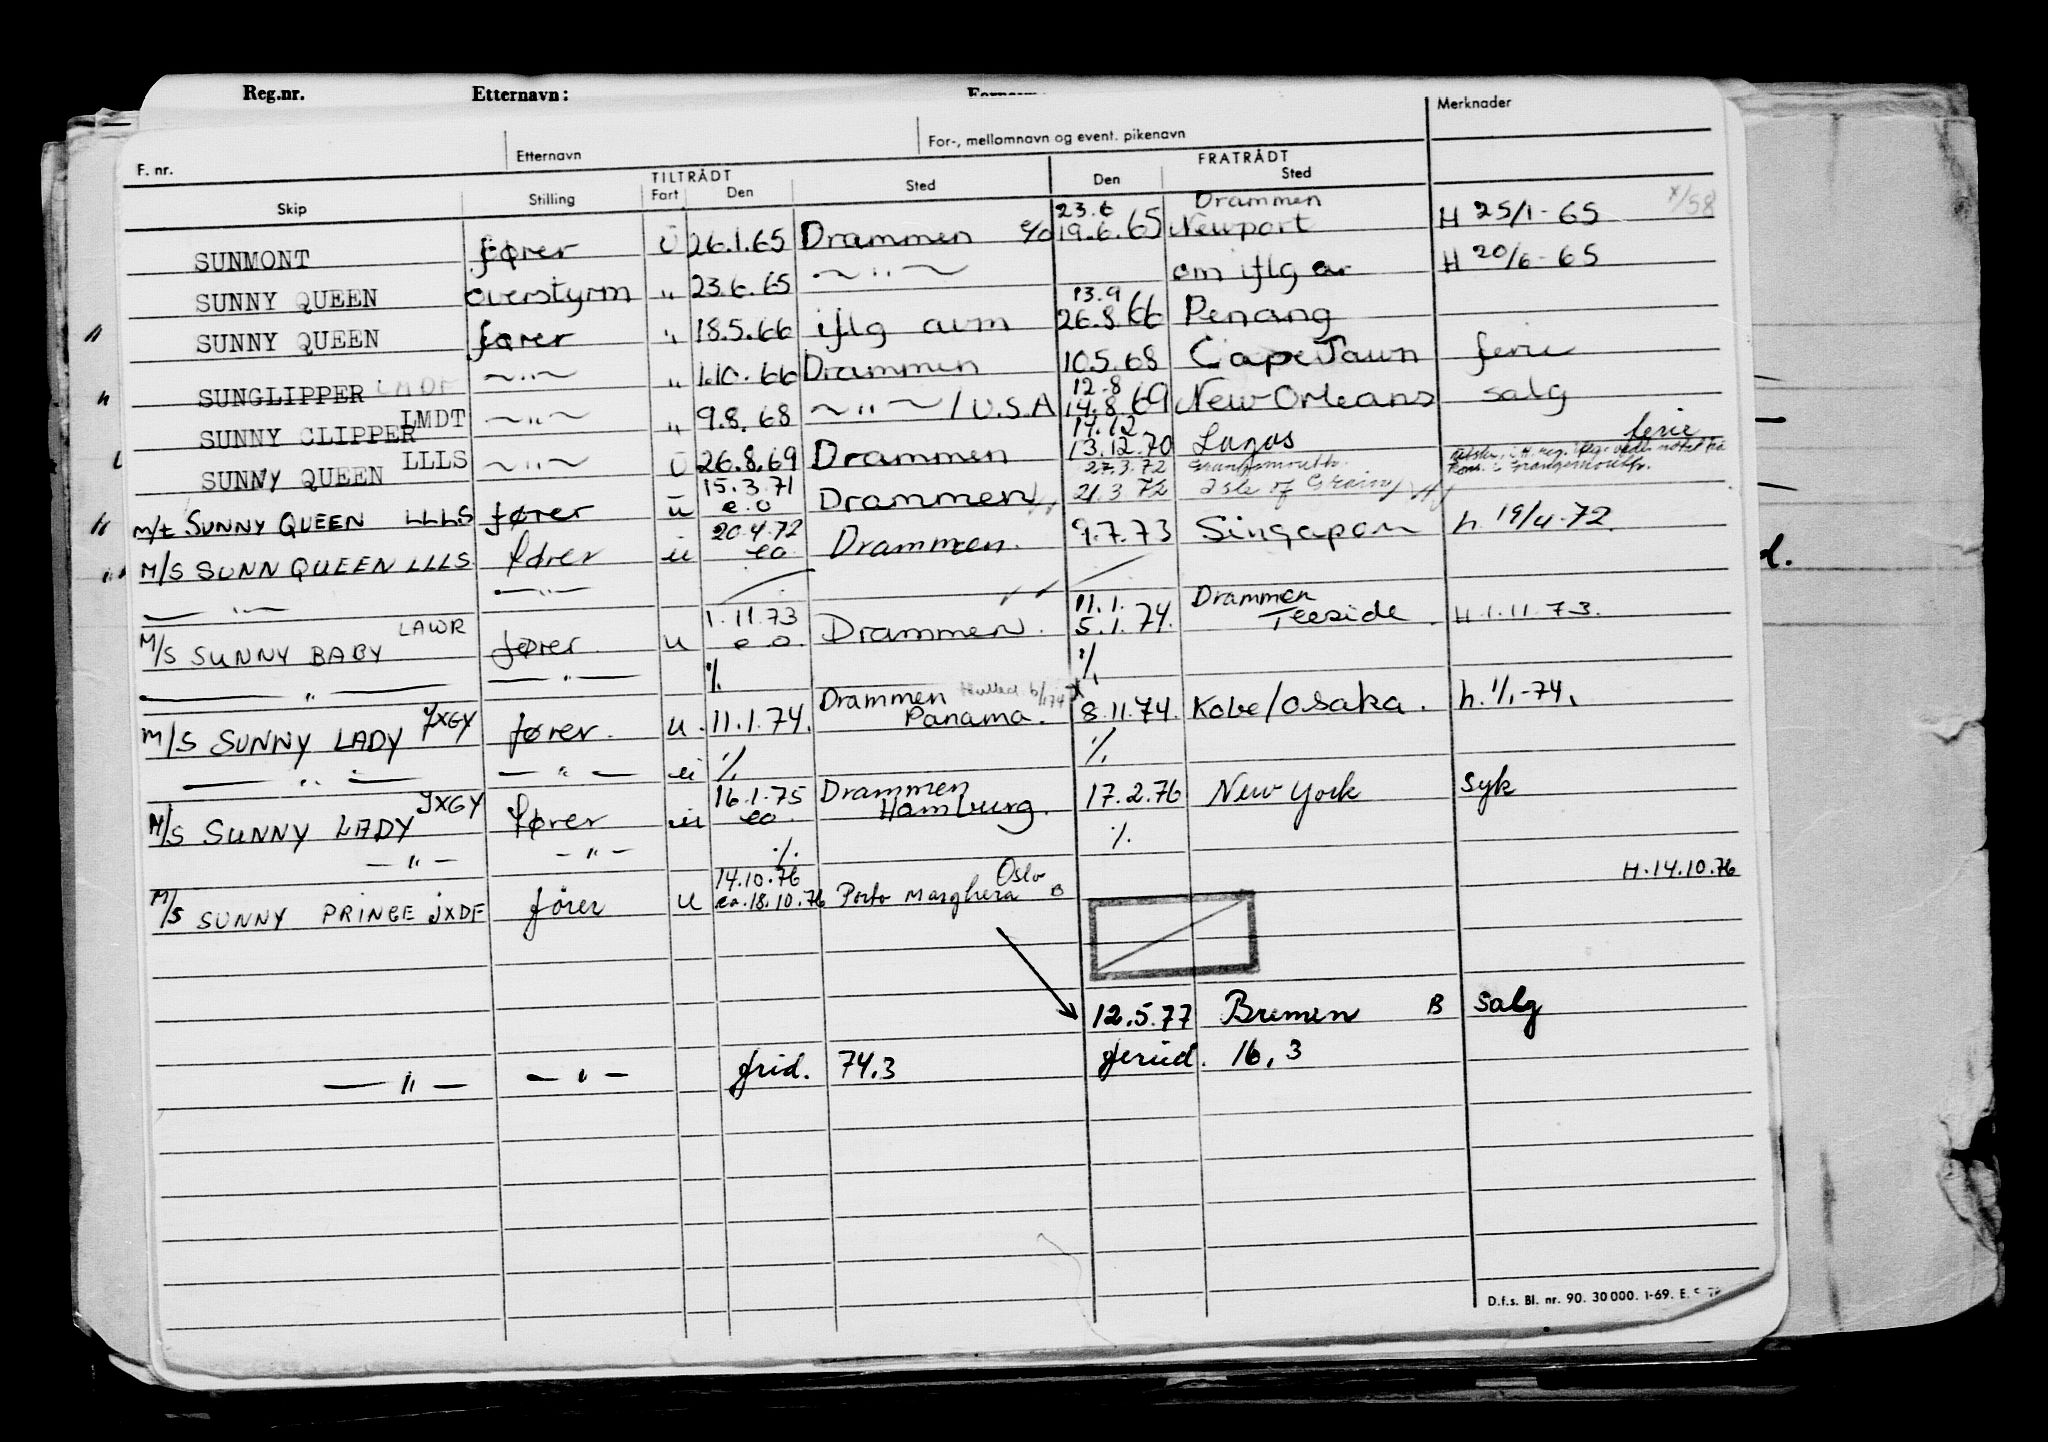 Reg.nr. Etternavn:
F. nr. Etternavn For-, mellomnavn og event. pikenavn Merknader
TILTRÅDT FRATRÅDT
Skip Stilling Fart Den Sted Den Sted
23.6 Drammen
SUNMONT fører Ü 26.1.65 Drammen e/o 19.6.65 Newport H 25/1-65 x/58
SUNNY QUEEN overstyrm " 23.6.65 ~ " ~ om iflg av H 20/6-65
13.9
SUNNY QUEEN fører " 18.5.66 iflg avm 26.8.66 Penang
SUNGLIPPER ~ " ~ " 1.10.66 Drammen 10.5.68 Cape Town ferie
12.8
SUNNY CLIPPER LMDT ~ " ~ " 9.8.68 ~ " ~ / U.S.A 14.8.69 New Orleans salg
14.12
SUNNY QUEEN LLLS ~ " ~ Ü 26.8.69 Drammen 13.12.70 Lagos ferie
15.3.71 27.3.72 Grangemouth.
M/t SUNNY QUEEN LLLS fører ü e.o Drammen 21.3.72 Isle of Grain
20.4.72
M/S SUNN QUEEN LLLS fører ü eo Drammen. 9.7.73 Singapore h. 19/4-72.
— " — — " —
1.11.73 11.1. Drammen
M/S SUNNY BABY LAWR fører u e o Drammen. 5.1.74. Teeside. H.1.11.73.
— " — — " — ./. ./.
Drammen
M/S SUNNY LADY JXGY fører. u. 11.1.74. Panama. 8.11.74. Kobe/Osaka. h. 1/1-74.
— " — — " — ü ./. ./.
16.1.75 Drammen
M/S SUNNY LADY JXGY fører ü eo. Hamburg. 17.2.76 New York Syk
— " — — " — ./. ./.
14.10.76 Oslo H.14.10.76
M/S SUNNY PRINCE JXDF fører u ca.18.10.76 Porto Marghera B
12.5.77 Bremen B Salg
— " — — " — frid. 74.3 feried. 16.3
D.f.s. Bl. nr. 90. 30 000. 1-69. E.